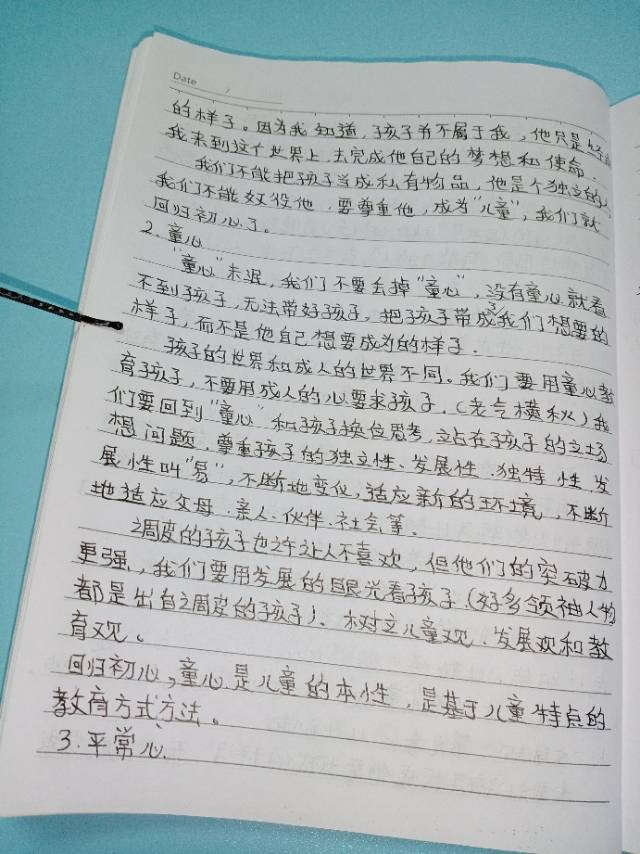 Date /
的样子。因为我知道,孩子并不属于我,他只是经
我来到这个世界上,去完成他自己的梦想和使命.
我们不能把孩子当成私有物品,他是个独立的人
我们不能奴役他.要尊重他,成为“儿童”,我们就
回归初心了。
2.童心
“童心”未泯,我们不要丢掉“童心”,没有童心就看
不到孩子,无法带好孩子,把孩子带成了我们想要的
样子,而不是他自己想要成为的样子.
孩子的世界和成人的世界不同。我们要用童心教
育孩子,不要用成人的心要求孩子.(老气横秋)我
们要回到“童心”和孩子换位思考,立占在孩子的立场
想问题.尊重孩子的独立性、发展性.独特性,发
展性叫“易”,不断地变化,适应新的环境,不断
地适应父母.亲人.伙伴.社会等.
调皮的孩子也许让人不喜欢,但他们的突破力
更强,我们要用发展的眼光看孩子.(好多领袖人物
都是出自调皮的孩子).树立儿童观.发展观和教
育观。
回归初心,童心是儿童的本性,是基于儿童特点的
教育方式方法。
3.平常心.